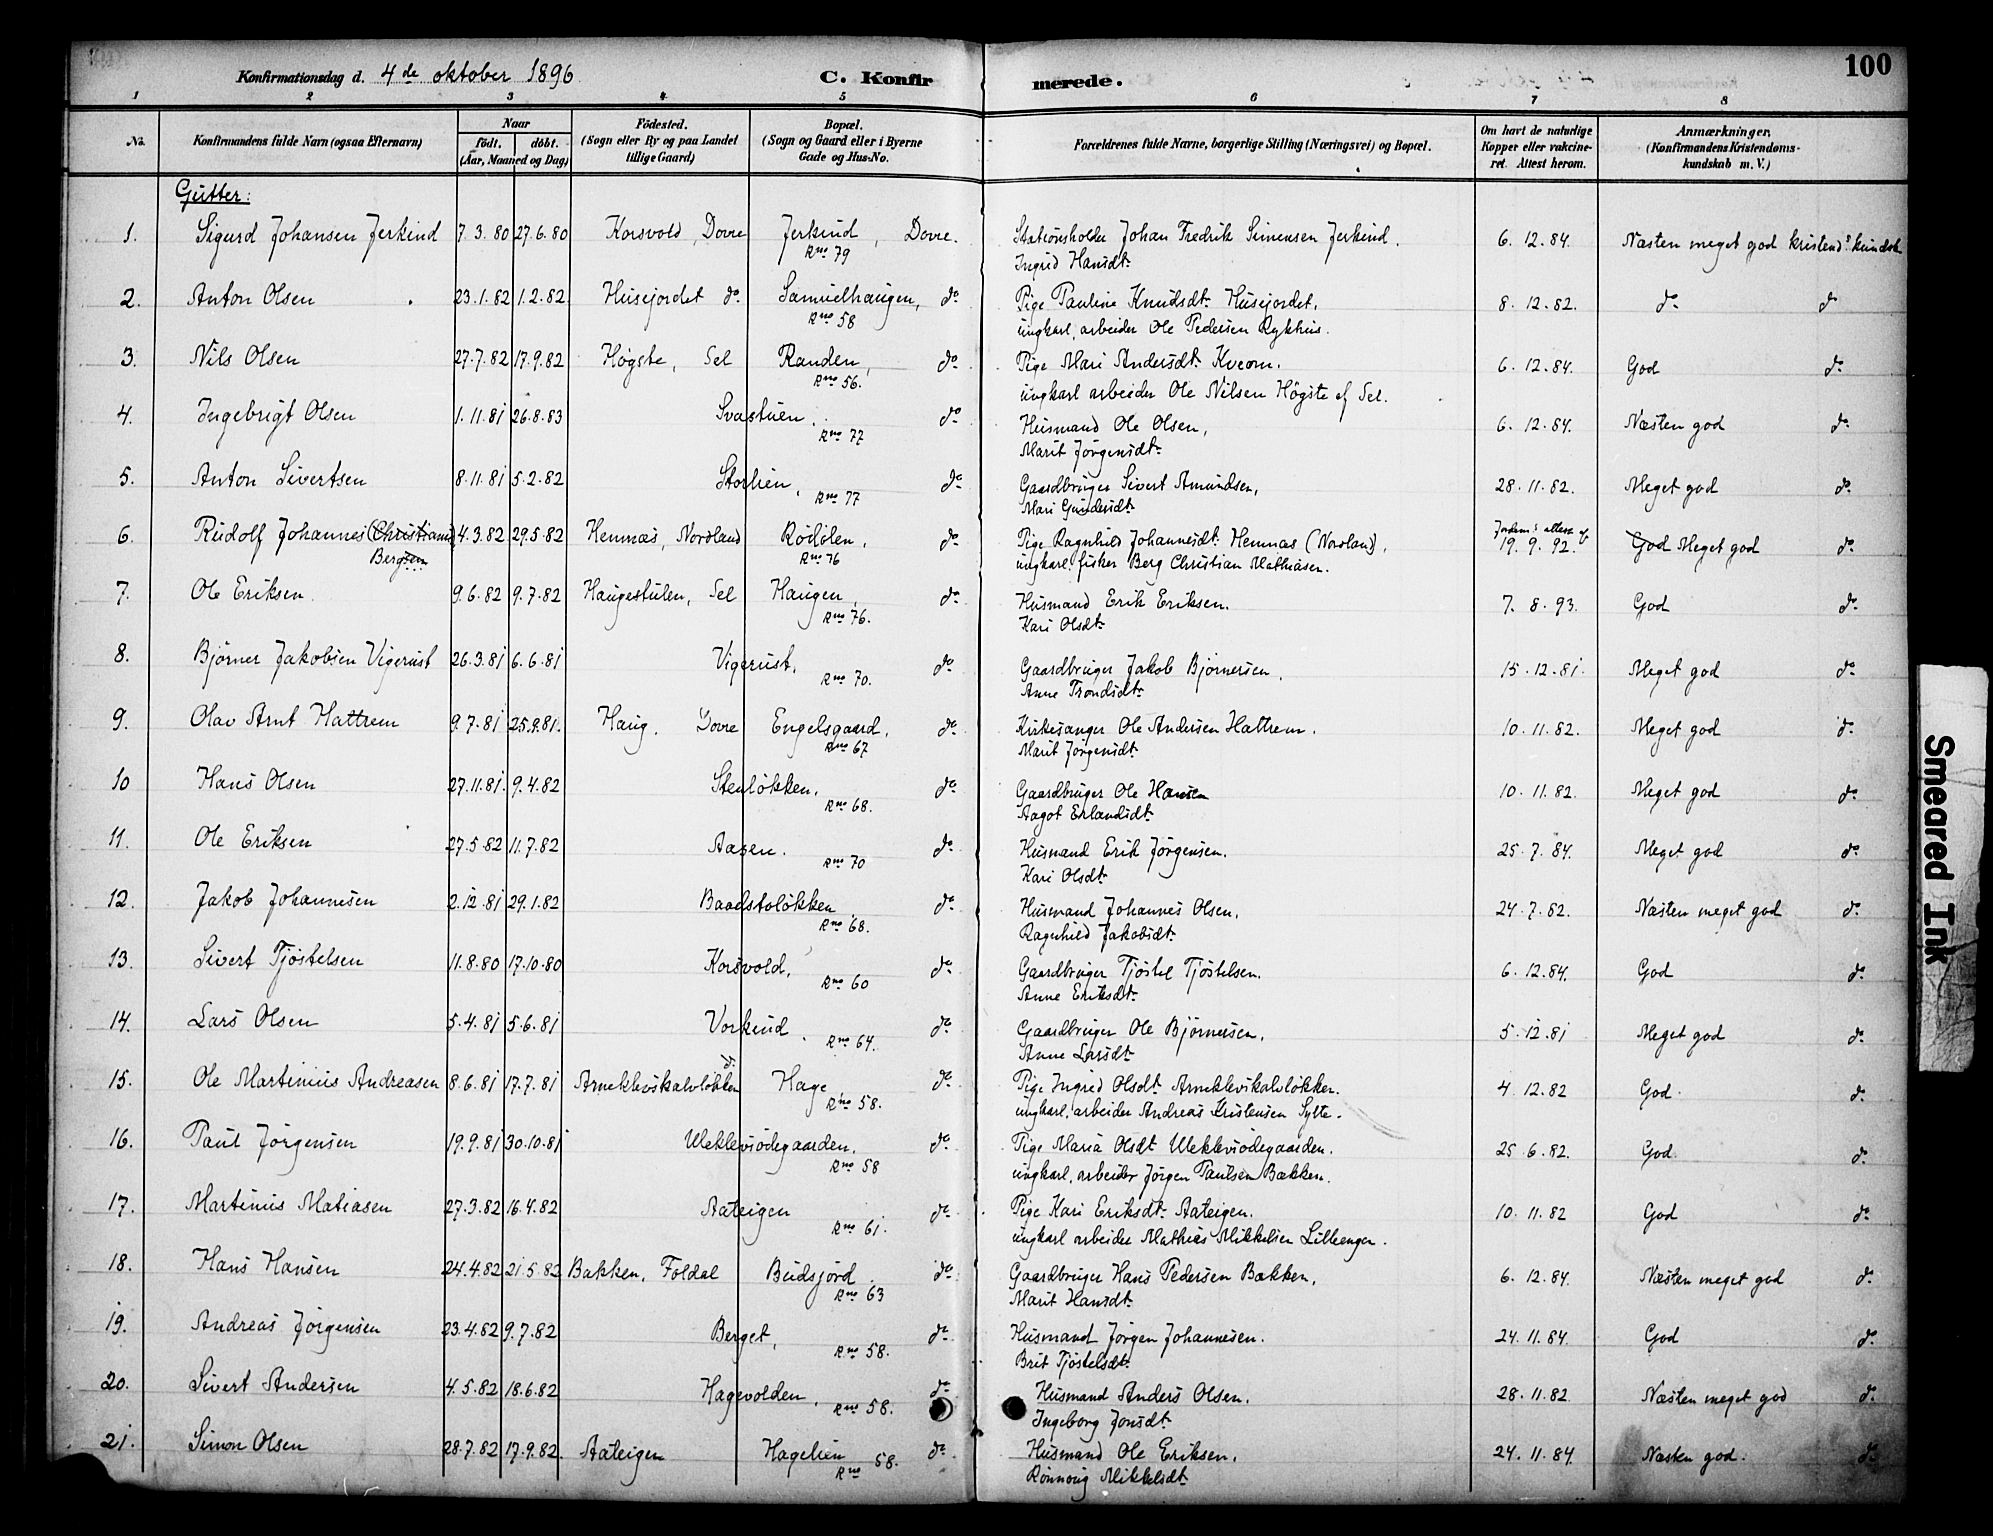 Konfirmationsdag d. 4de oktober 1896 C. Konfirmerede. 100
1 2 3 4 5 6 7 8
No. Konfirmandens fulde Navn (ogsaa Efternavn) Naar födt. döbt. (Aar, Maaned og Dag) Födested. (Sogn eller By og paa Landet tillige Gaard) Bopæl. (Sogn og Gaard eller i Byerne Gade og Hus-No. Forældrenes fulde Navne, borgerlige Stilling (Næringsvei) og Bopæl. Om havt de naturlige Kopper eller vakcineret. Attest herom. Anmærkninger, (Konfirmandens Kristendomskundskab m. V.)
Gutter:
1. Sigurd Johansen Jerkind 7.3.80 27.6.80 Korsvold, Dovre Jerkind, Dovre. Stationsholder Johan Fredrik Simensen Jerkind. 6.12.84. Næsten meget god kristend.s kundsk
Rno 79 Ingrid Hansdtr
2. Anton Olsen 23.1.82 1.2.82 Husejordet do Samuelhaugen, do Pige Pauline Knudsdtr Husejordet. 8.12.82. do do
Rno 58 ungkarl, arbeider Ole Pedersen Rykhus.
3. Nils Olsen 27.7.82 17.9.82 Høgste, Sel Randen, do Pige Mari Andersdtr Kveom. 6.12.84. God do
Rno 56. ungkarl arbeider Ole Nilsen Högste af Sel.
4. Ingebrigt Olsen 1.11.81 26.8.83 Svastuen. do Husmand Ole Olsen, 6.12.84. Næsten god do
Rno 77 Marit Jørgensdtr
5. Anton Sivertsen 8.11.81 5.2.82 Storlien, do Gaardbruger Sivert Amundsen, 28.11.82. Meget god do
Rno 77 Mari Gundersdtr
6. Rudolf Johannes (Christiansen) 4.3.82 29.5.82 Hemnæs, Nordland do Pige Ragnhild Johannesdtr Hemnæs (Nordland), 19.9.92. God Meget god do
Bergsen Rno 76 ungkarl fisker Berg Christian Mathiasen.
7. Ole Eriksen 9.6.82 9.7.82 Haugestulen, Sel Haugen, do Husmand Erik Eriksen. 7.8.93. God do
Rno 76. Kari Olsdtr
8. Bjørner Jakobsen Vigerust 26.3.81 6.6.81 Vigerust. do Gaardbruger Jakob Bjørnersen. 15.12.81. Meget god do
Rno 70. Anne Trondsdtr
9. Olav Arnt Hattrem 9.7.81 25.9.81. Haug. Dovre Engelsgaard, do Kirkesanger Ole Andersen Hattrem. 10.11.82. Meget god do
Rno 67 Marit Jørgensdtr
10 Hans Olsen 27.11.81. 9.4.82 Stenløkken, do Gaardbruger Ole Hansen 10.11.82. Meget god do
Rno 68. Aagot Erlandsdtr
11. Ole Eriksen 27.5.82 11.7.82 Aasen. do Husmand Erik Jørgensen. 25.7.84. Meget god do
Rno 70 Kari Olsdtr
12. Jakob Johannesen 2.12.81 29.1.82 Baadstoløkken do Husmand Johannes Olsen, 24.7.82. Næsten meget god do
Rno 68. Ragnhild Jakobsdtr
13. Sivert Tjøstelsen 11.8.80 17.10.80 Korsvold, do Gaardbruger Tjøstel Tjøstelsen. 6.12.84. God do
Rno 60 Anne Eriksdtr
14. Lars Olsen 5.4.81 5.6.81 Vorkind. do Gaardbruger Ole Bjørnersen, 5.12.81 Meget god do
Rno 64. Anne Larsdtr
15. Ole Martinius Andreasen 8.6.81 17.7.81 Arneklevskalvløkken do Hage do Pige Ingrid Olsdtr Arneklevskalvløkken. 4.12.82 God. do
Rno 58. ungkarl, arbeider Andreas Kristensen Sylte.
16. Paul Jørgensen 19.9.81 30.10.81 Uleklevsødegaarden, do Pige Maria Olsdtr Uleklevsødegaarden. 25.6.82. God. do
Rno 58 ungkarl, arbeider Jørgen Paulsen Bækken.
17. Martinus Matiasen 27.3.82 16.4.82 Aateigen do Pige Kari Eriksdtr Aateigen. 10.11.82 God do
Rno 61. ungkarl arbeider Mathias Mikkelsen Lilleenger.
18. Hans Hansen 24.4.82 21.5.82 Bakken, Foldal Budsjord. do Gaardbruger Hans Pedersen Bakken, 6.12.84. Næsten meget god do
Rno 63 Marit Hansdtr
19. Andreas Jørgensen 23.4.82 9.7.82 Berget, do Husmand Jørgen Johannesen. 24.11.84. God do
Rno 58. Brit Tjøstelsdtr
20. Sivert Andersen 4.5.82 18.6.82 Hagevolden, do Husmand Anders Olsen. 28.11.82 Næsten meget god do
Rno 58. Ingeborg Jonsdtr
21. Simon Olsen 28.7.82 17.9.82. Aateigen Hagelien do Husmand Ole Eriksen. 24.11.84 Næsten god. do
Rno 58. Rønnoug Mikkelsdtr
Smeared Ink